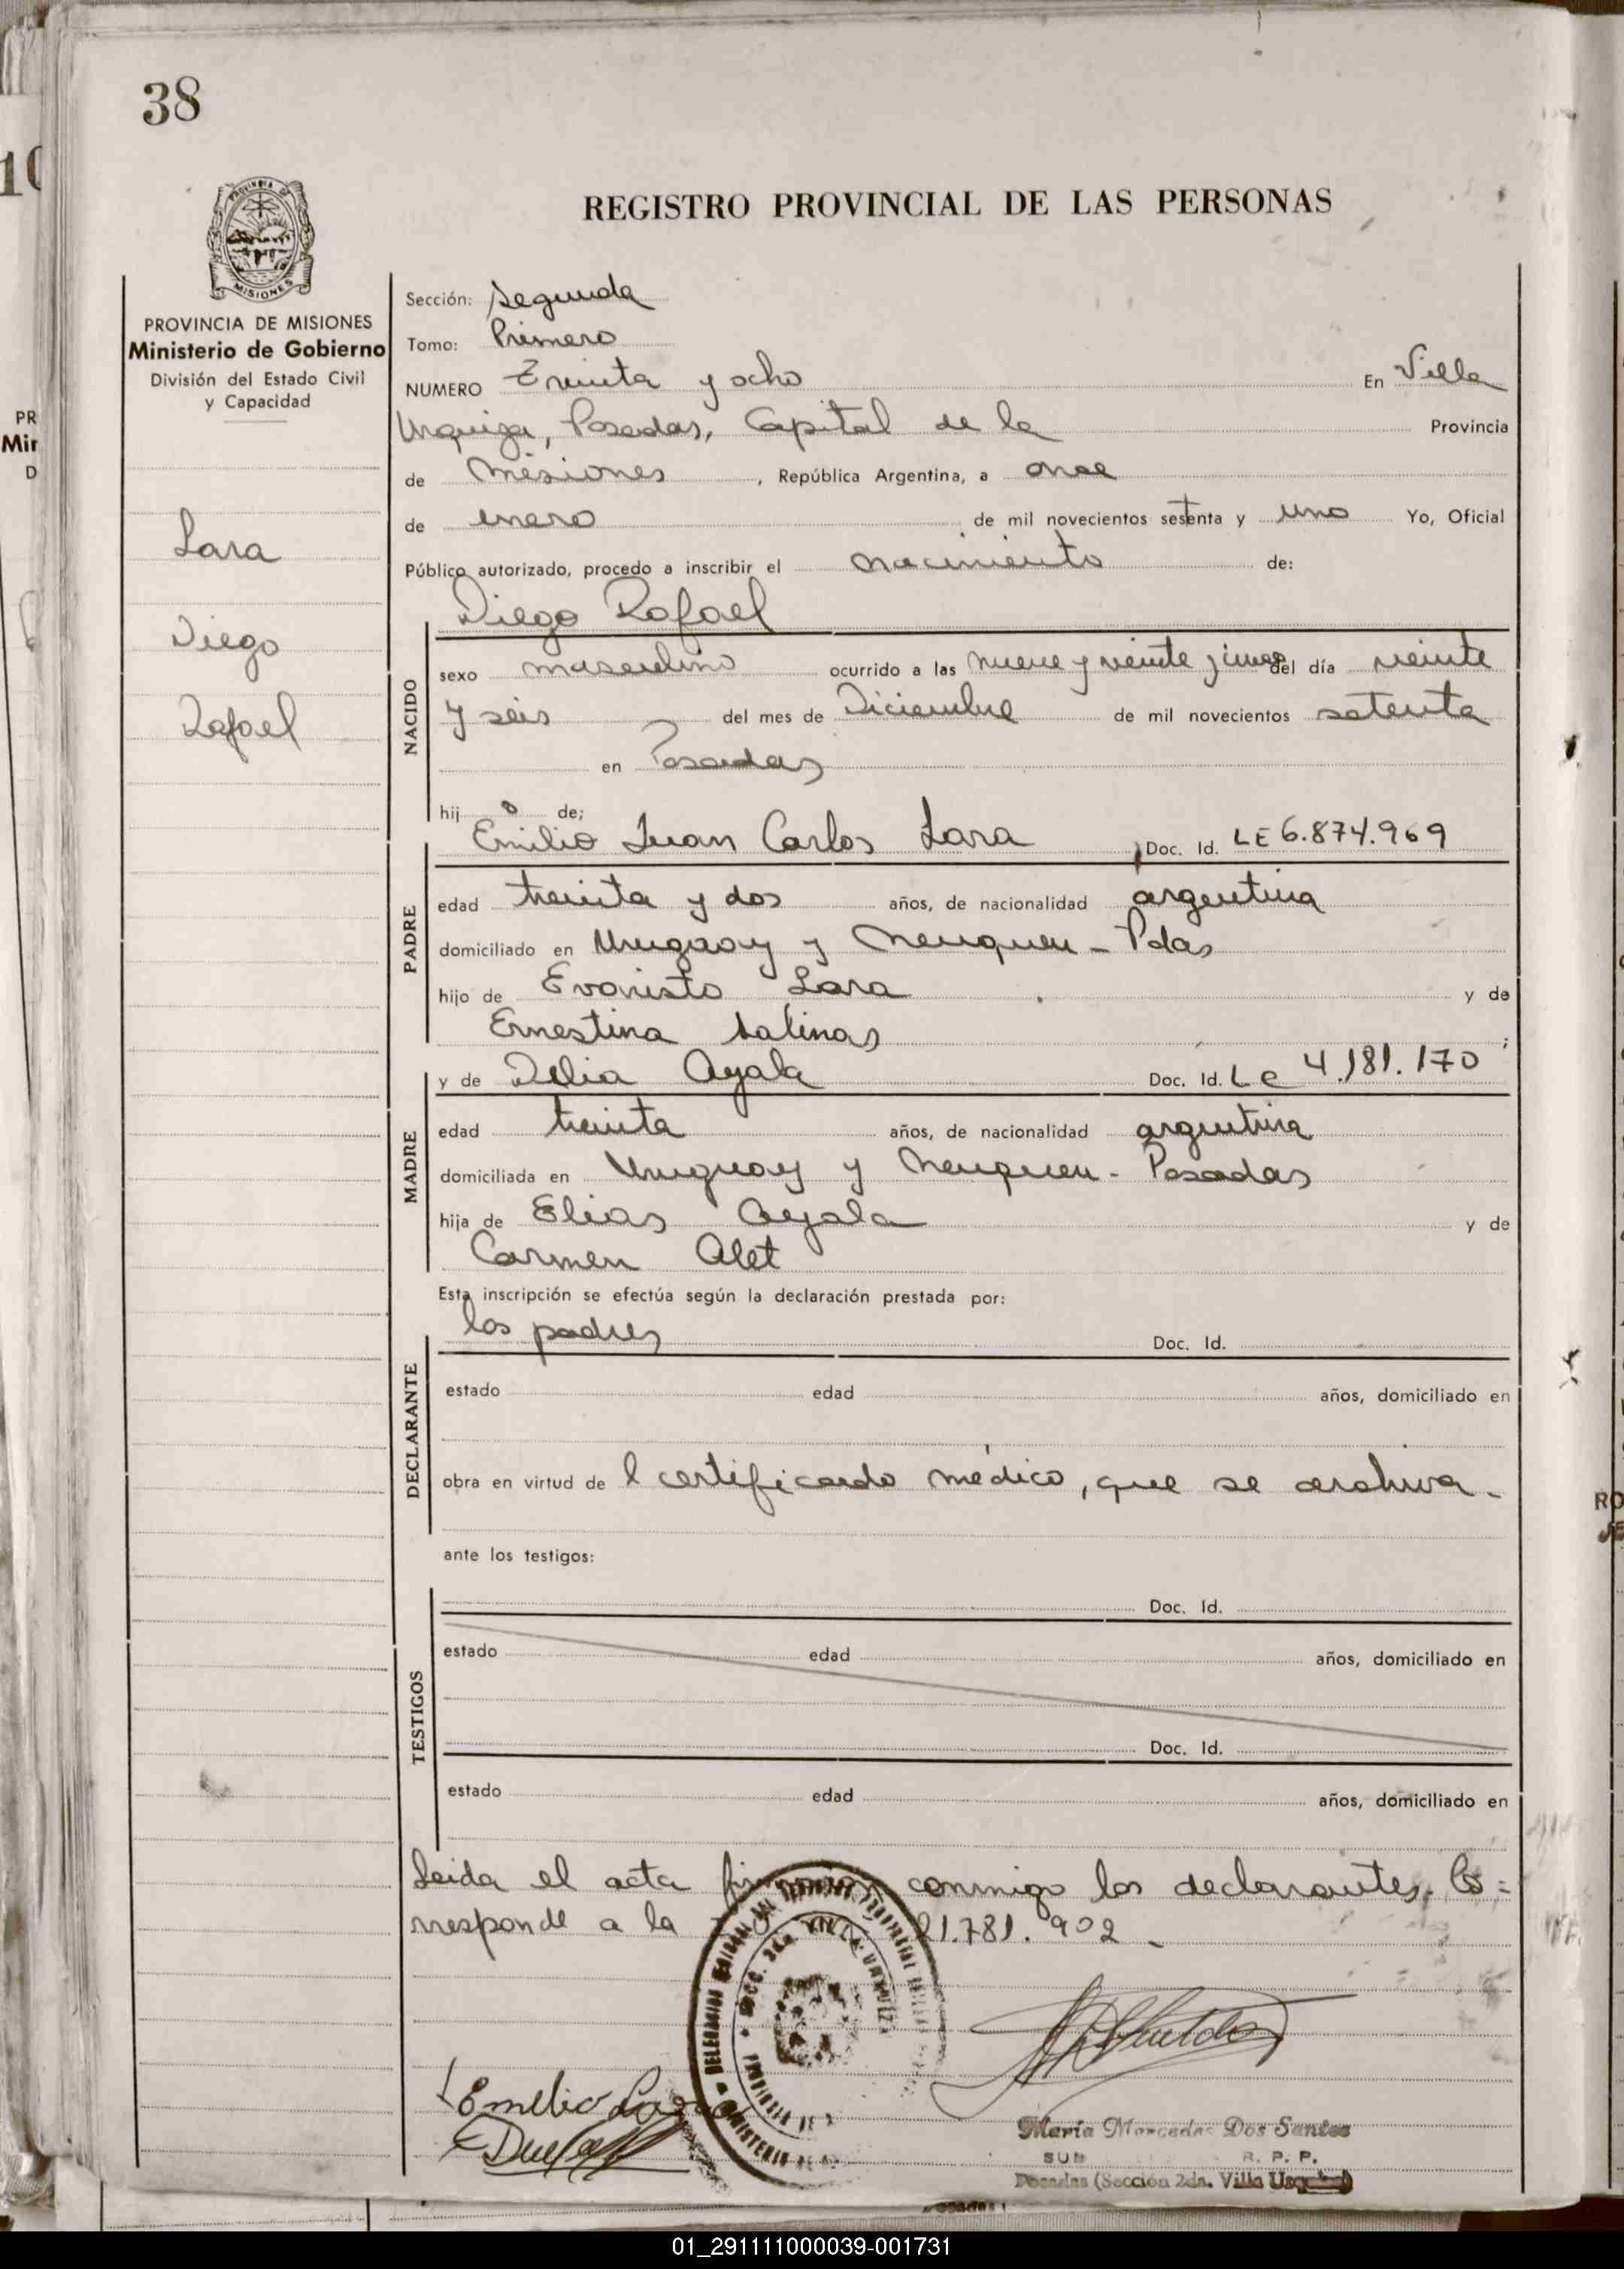 38
REGISTRO PROVINCIAL DE LAS PERSONAS
PROVINCIA DE
MISIONES
PROVINCIA DE MISIONES
Ministerio de Gobierno
División del Estado Civil
y Capacidad
Lara
Diego
Rafael
Sección: Segunda
Tomo: Primero
NUMERO Treinta y ocho En Villa
Urquiza, Posadas, Capital de la Provincia
de Misiones, República Argentina, a once
de enero de mil novecientos setenta y uno Yo, Oficial
Público autorizado, procedo a inscribir el nacimiento de:
Diego Rafael
NACIDO
sexo masculino ocurrido a las nueve y veinte y cinco del día veinte
y seis del mes de Diciembre de mil novecientos setenta
en Posadas
hij o de;
Emilio Juan Carlos Lara Doc. Id. LE 6.874.969
PADRE
edad treinta y dos años, de nacionalidad argentina
domiciliado en Uruguay y Neuquen - Pdas
hijo de Evaristo Lara y de
Ernestina Salinas ;
y de Delia Ayala Doc. Id. Lc 4.181.170
MADRE
edad treinta años, de nacionalidad argentina
domiciliada en Uruguay y Neuquen - Posadas
hija de Elias Ayala y de
Carmen Alet
Esta inscripción se efectúa según la declaración prestada por:
los padres Doc. Id.
DECLARANTE
estado edad años, domiciliado en
obra en virtud de l certificado médico, que se archiva -
ante los testigos:
Doc. Id.
TESTIGOS
estado edad años, domiciliado en
Doc. Id.
estado edad años, domiciliado en
Leida el acta firman conmigo los declarantes. Co=
rresponde a la 21.781.902 -
SECC. 2da. VILLA URQUIZA
Emilio Lara
María Mercedes Dos Santos
SUB R. P. P.
Posadas (Sección 2da. Villa Urquiza)
01_291111000039-001731